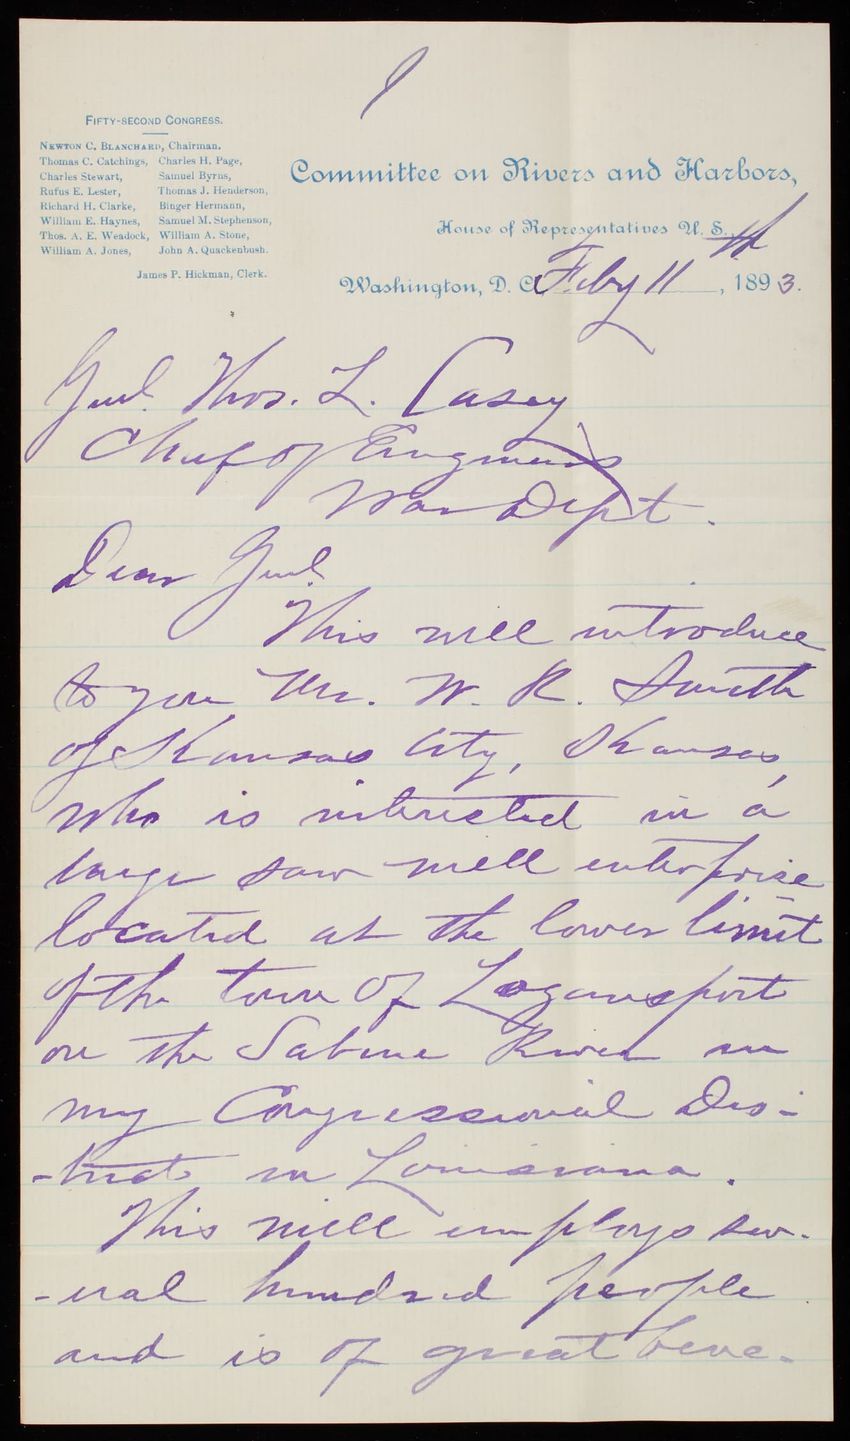 1
FIFTY-SECOND CONGRESS.
NEWTON C. BLANCHARD, Chairman.
Thomas C. Catchings, Charles H. Page,
Charles Stewart, Samuel Byrns,
Rufus E. Lester, Thomas J. Henderson,
Richard H. Clarke, Binger Hermann,
William E. Haynes, Samuel M. Stephenson,
Thos. A. E. Weadock, William A. Stone,
William A. Jones, John A. Quackenbush.
James P. Hickman, Clerk.
Committee on Rivers and Harbors,
House of Representatives U. S.,
Washington, D. C. Feby 11th, 1893.
Genl. Thos. L. Casey
Chief of Engineers
War Dept.
Dear Genl.
This will introduce
to you Mr. W. R. Smith
of Kansas City, Kansas,
who is interested in a
large saw mill enterprise
located at the lower limit
of the town of Logansport
on the Sabine River in
my Congressional Dis-
-trict in Louisiana.
This mill employs sev-
-eral hundred people
and is of great bene-